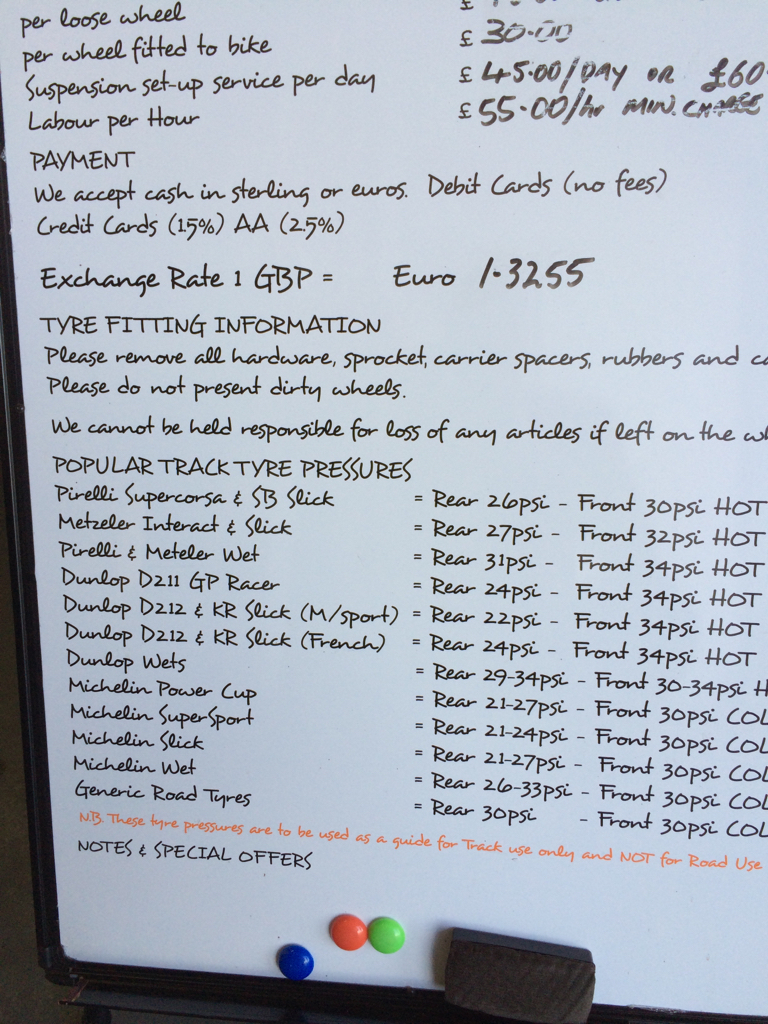 per loose wheel £
per wheel fitted to bike £ 30.00
Suspension set-up service per day £ 45.00/DAY OR £60
Labour per Hour £ 55.00/hr MIN. CHARGE
PAYMENT
We accept cash in sterling or euros. Debit Cards (no fees)
Credit Cards (1.5%) AA (2.5%)
Exchange Rate 1 GBP = Euro 1.3255
TYRE FITTING INFORMATION
Please remove all hardware, sprocket, carrier spacers, rubbers and ca
Please do not present dirty wheels.
We cannot be held responsible for loss of any articles if left on the wh
POPULAR TRACK TYRE PRESSURES
Pirelli Supercorsa & SB Slick = Rear 26psi - Front 30psi HOT
Metzeler Interact & Slick = Rear 27psi - Front 32psi HOT
Pirelli & Meteler Wet = Rear 31psi - Front 34psi HOT
Dunlop D211 GP Racer = Rear 24psi - Front 34psi HOT
Dunlop D212 & KR Slick (M/sport) = Rear 22psi - Front 34psi HOT
Dunlop D212 & KR Slick (French) = Rear 24psi - Front 34psi HOT
Dunlop Wets = Rear 29-34psi - Front 30-34psi H
Michelin Power Cup = Rear 21-27psi - Front 30psi COL
Michelin SuperSport = Rear 21-24psi - Front 30psi COL
Michelin Slick = Rear 21-27psi - Front 30psi COL
Michelin Wet = Rear 26-33psi - Front 30psi COL
Generic Road Tyres = Rear 30psi - Front 30psi COL
N.B. These tyre pressures are to be used as a guide for Track use only and NOT for Road Use
NOTES & SPECIAL OFFERS